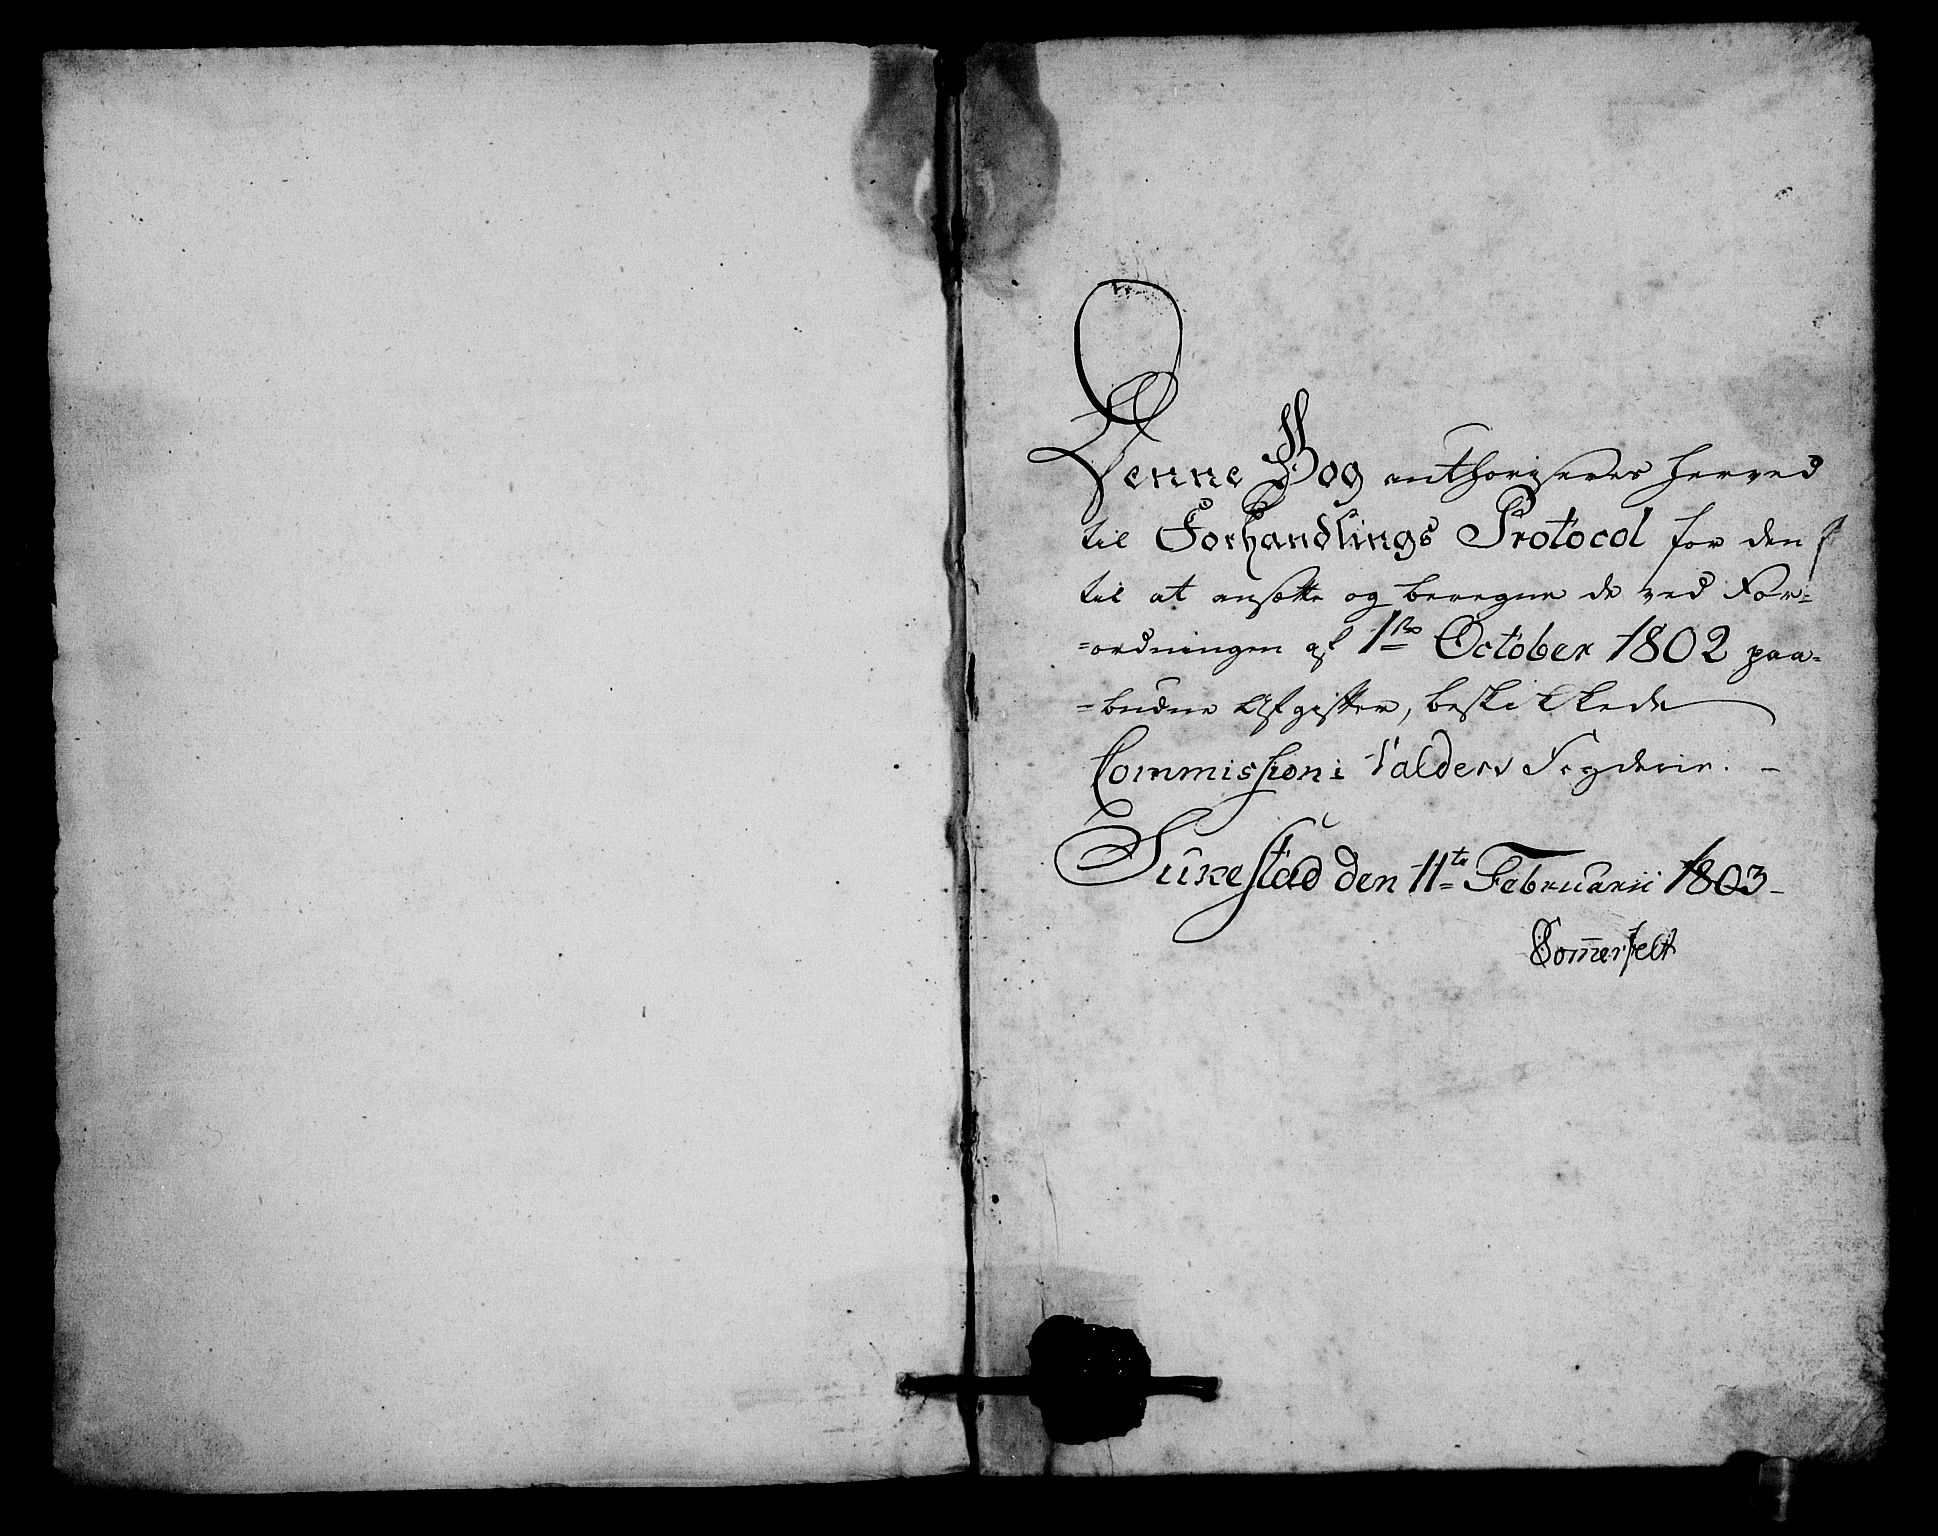 Denne Bog authoriseres herved
til Forhandlings Protocol for den
til at ansætte og beregne de ved For-
-ordningen af 1ste October 1802 paa-
-budne Afgifter, beskikkede
Commission i Valders Fogderie. -
Sukestad den 11te Februarii 1803 -
Somerfelt